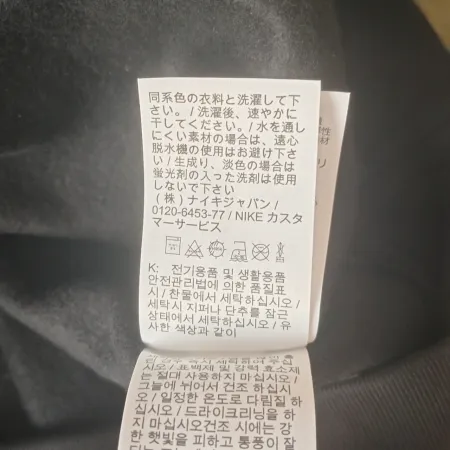 同系色の衣料と洗濯して下
さい。/ 洗濯後、速やかに
干してください。/ 水を通し
にくい素材の場合は、遠心
脱水機の使用はお避け下さ
い / 生成り、淡色の場合は
蛍光剤の入った洗剤は使用
しないで下さい
(株) ナイキジャパン /
0120-6453-77 / NIKE カスタ
マーサービス
K: 전기용품 및 생활용품
안전관리법에 의한 품질표
시 / 찬물에서 세탁하십시오 /
세탁시 지퍼나 단추를 잠근
상태에서 세탁하십시오 / 유
사한 색상과 같이
십시오 / 표백제 및 강력 효소제
는 절대 사용하지 마십시오 /
그늘에 뉘어서 건조 하십시
오 / 일정한 온도로 다림질 하
십시오 / 드라이크리닝을 하
지 마십시오건조 시에는 강
한 햇빛을 피하고 통풍이 잘